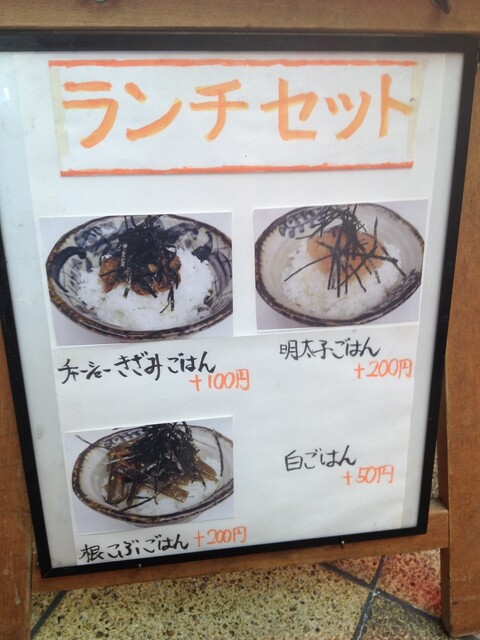 ランチセット
チャーシューきざみごはん
+100円
明太子ごはん
+200円
根こぶごはん +200円
白ごはん
+50円